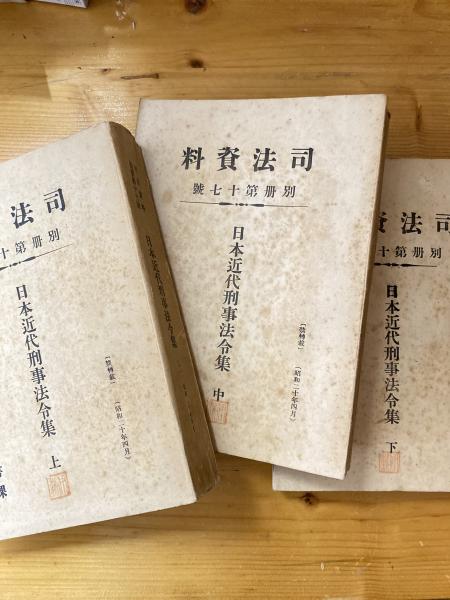 司法
別冊第十
日本近代刑事法令集 上
(禁轉載)
(昭和二十年四月)
課
日本近代刑事法令集
司法資料
別冊第十七號
日本近代刑事法令集 中
(禁轉載)
(昭和二十年四月)
司法資
別冊第十
日本近代刑事法令集 下